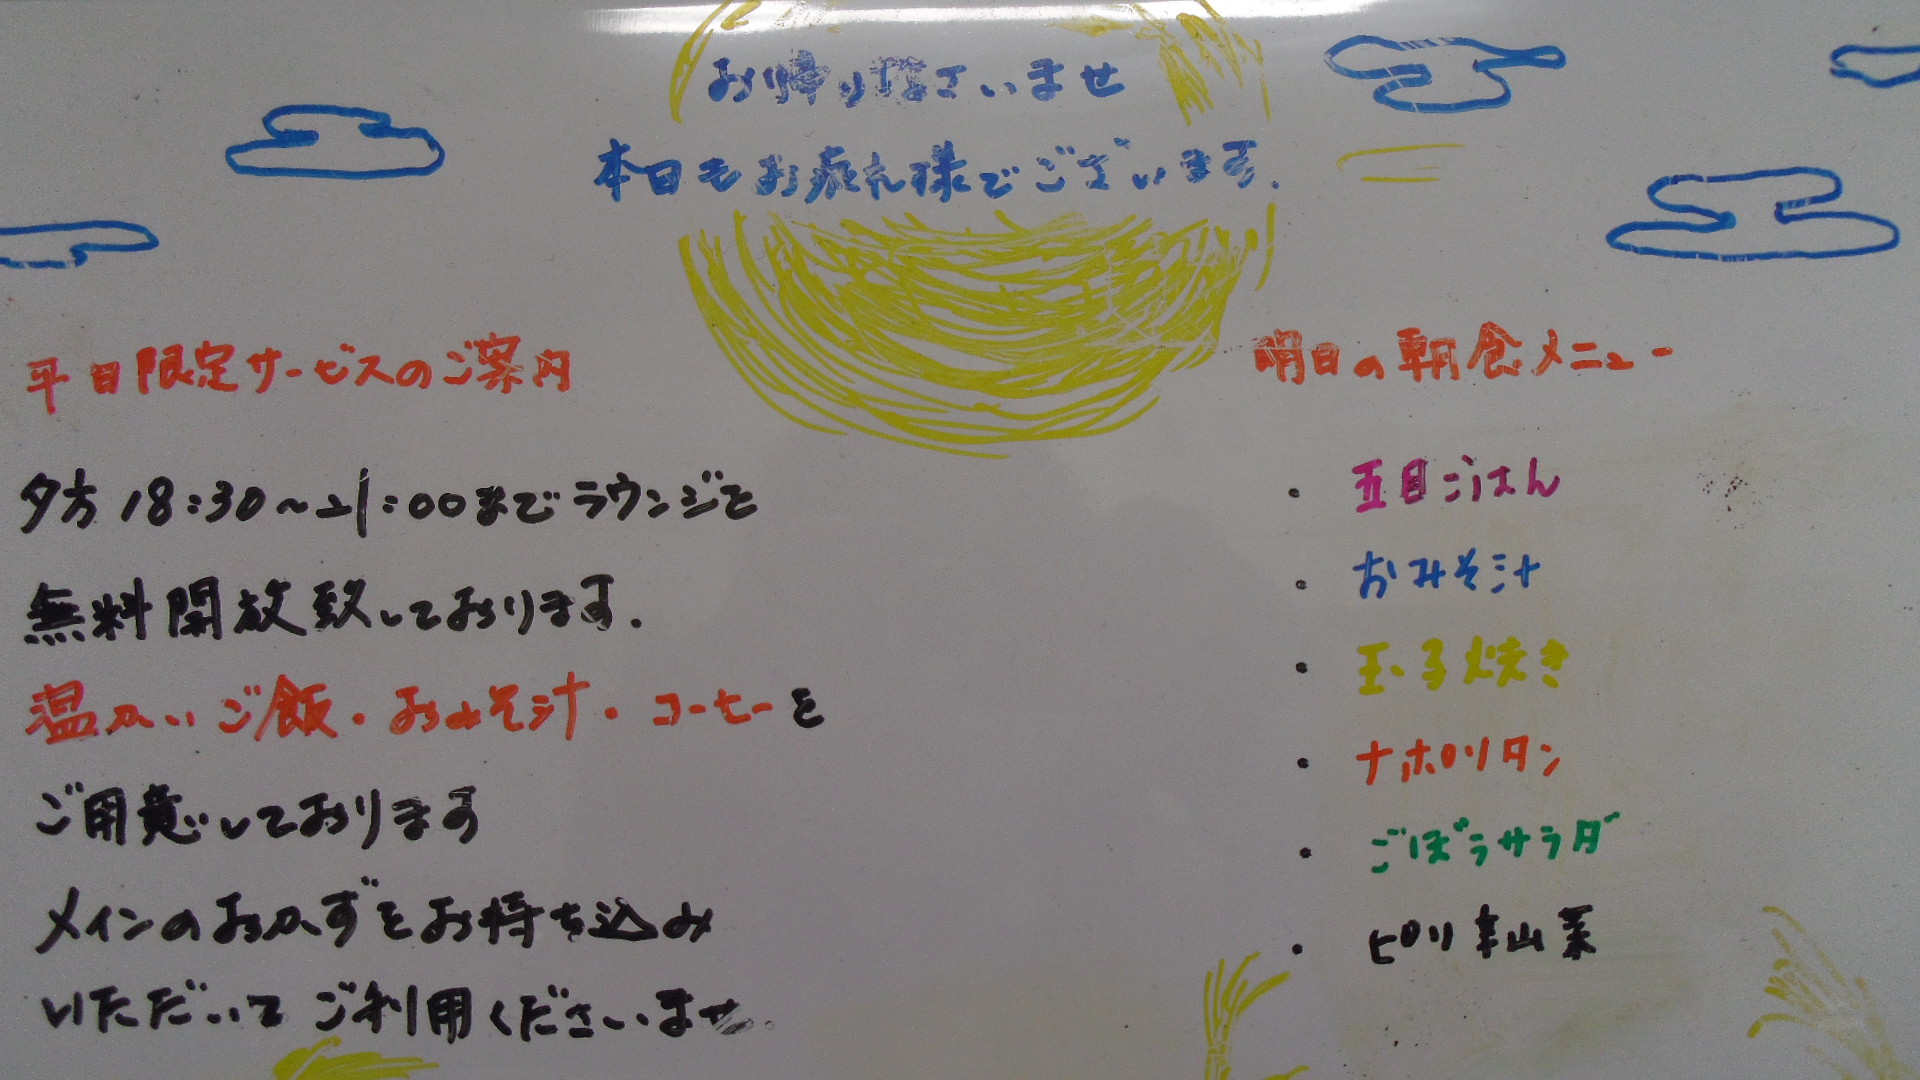 お帰りなさいませ
本日もお疲れ様でございます.
平日限定サービスのご案内
夕方18:30~21:00までラウンジを
無料開放致しております.
温かいご飯・おみそ汁・コーヒーを
ご用意しております
メインのおかずをお持ち込み
いただいてご利用くださいませ.
明日の朝食メニュー
・ 五目ごはん
・ おみそ汁
・ 玉子焼き
・ ナポリタン
・ ごぼうサラダ
・ ピリ辛山菜